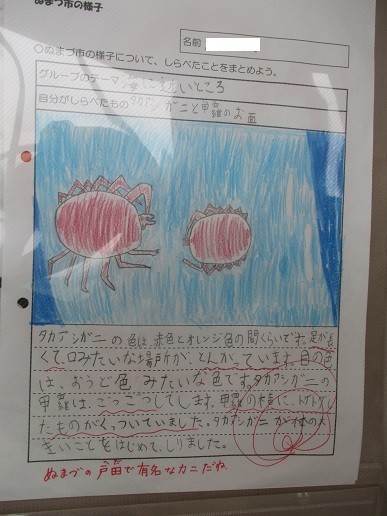 ぬまづ市の様子
名前
○ぬまづ市の様子について、しらべたことをまとめよう。
グループのテーマ 海に近いところ
自分がしらべたもの タカアシガニと甲羅のお面
タカアシガニの色は、赤色とオレンジ色の間くらいです。足が長
くて、口みたいな場所が、とんがっています。目の色
は、おうど色みたいな色です。タカアシガニの
甲羅は、ごつごつしてします。甲羅の横に、トゲトゲし
たものがくっついていました。タカアシガニが体の大
きいことをはじめて、しりました。
ぬまづの戸田で有名なカニだね。
へだ